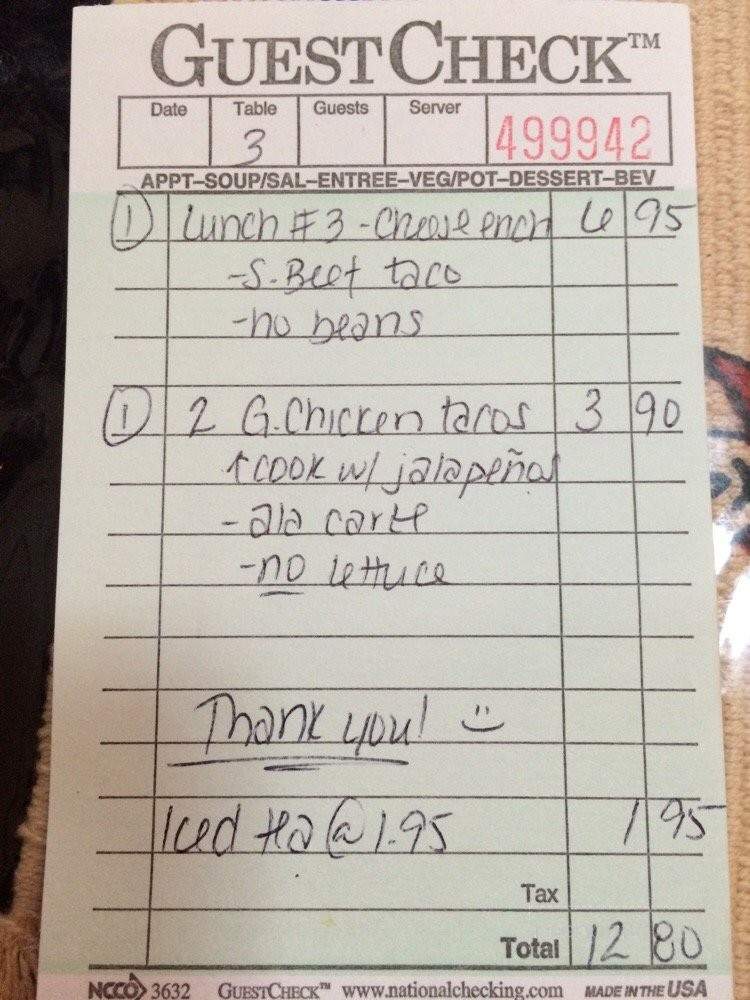 GUESTCHECK™
Date Table Guests Server
3 499942
APPT–SOUP/SAL–ENTREE–VEG/POT–DESSERT–BEV
1 Lunch #3 - Cheese ench 6 95
-S. Beef taco
-no beans
1 2 G. Chicken tacos 3 90
↑ cook w/ jalapeños
- ala carte
-no lettuce
Thank you! :)
Iced tea @ 1.95 1 95
Tax
Total 12 80
NCCO 3632 GUESTCHECK™ www.nationalchecking.com MADE IN THE USA